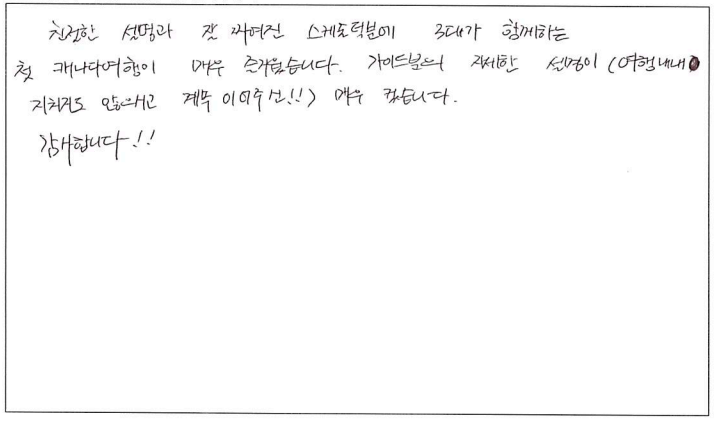 친절한 설명과 잘 짜여진 스케줄덕분에 3대가 함께하는
첫 캐나다여행이 매우 즐거웠습니다. 가이드분의 자세한 설명이 (여행내내
지치지도 않으시고 계속 이어주신!!) 매우 컸습니다.
감사합니다!!